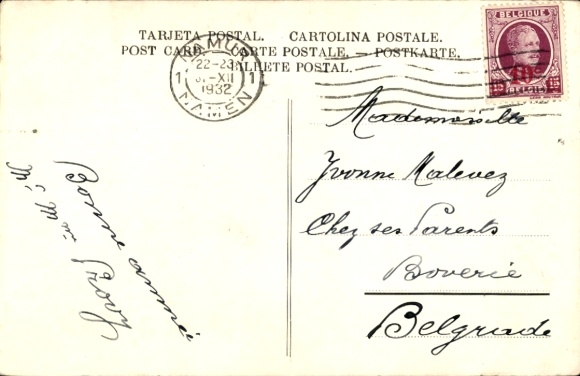 TARJETA POSTAL. CARTOLINA POSTALE.
POST CARD. — CARTE POSTALE. — POSTKARTE.
BILHETE POSTAL.
NAMUR
1 22-23 1
XII
1932
NAMEN
BELGIQUE
10c
15 15
BELGIË
Mademoiselle
Yvonne Malevez
Chez ses Parents
Boverie
Belgrade
Mr & Mme
Bonne année